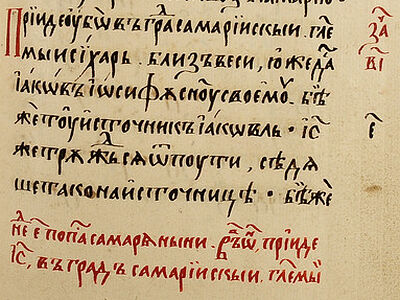 Прїидеѹбѡ въ гра҃ самарїискыи. гл҃е
мыи сїхарь. близъ веси, юже дⷶа
іаковъ іѡсифѹ сн҃ѹ своемѹ. бѣ
же тѹ источникъ іаковль · іс҃
же трѹждься ѿ пѹти, сѣдя
ше тако на источнице · бѣ же
не є҃ самаряныни. приїде
іс҃, въ градъ самарїискыи. гл҃емыи
за҃
ві҃
є҃